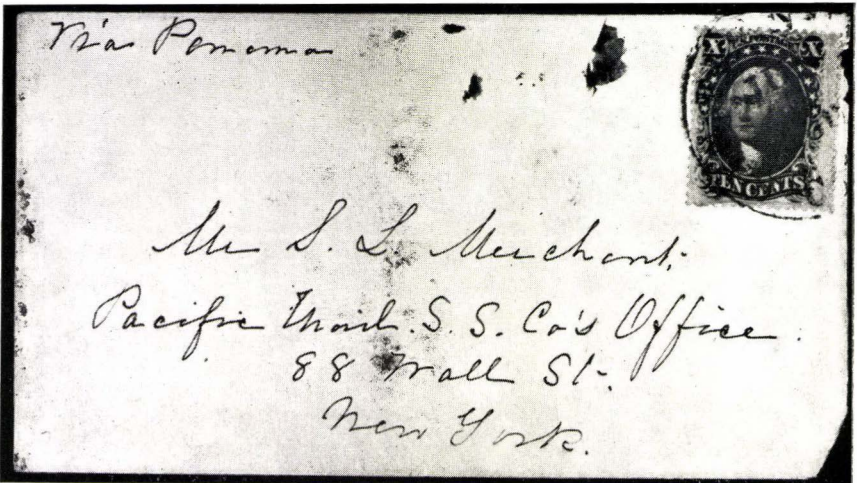 Via Panama
X X
TEN CENTS
Mr S. L. Merchant,
Pacific Mail. S. S. Co's Office.
88 Wall St.
New York.